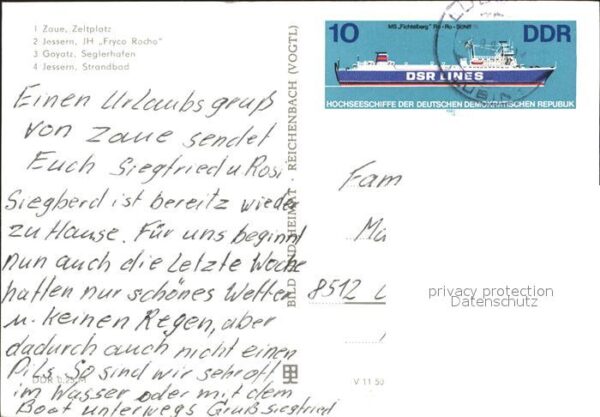 1 Zaue, Zeltplatz
2 Jessern, JH „Fryco Rocho"
3 Goyatz, Seglerhafen
4 Jessern, Strandbad
Einen Urlaubsgruß
von Zaue sendet
Euch Siegfried u Rosi
Siegberd ist bereitz wieder
zu Hause. Für uns beginnt
nun auch die Letzte Woche
hatten nur schönes Wetter
u. keinen Regen, aber
dadurch auch nicht einen
Pils. So sind wir sehr oft
im Wasser oder mit dem
Boot unterwegs Gruß Siegfried
BILD UND HEIMAT · REICHENBACH (VOGTL)
10 MS „Fichtelberg" Ro-Ro-Schiff DDR
DSR LINES
HOCHSEESCHIFFE DER DEUTSCHEN DEMOKRATISCHEN REPUBLIK
Fam
Mü
8512 L
privacy protection
Datenschutz
V 11 50